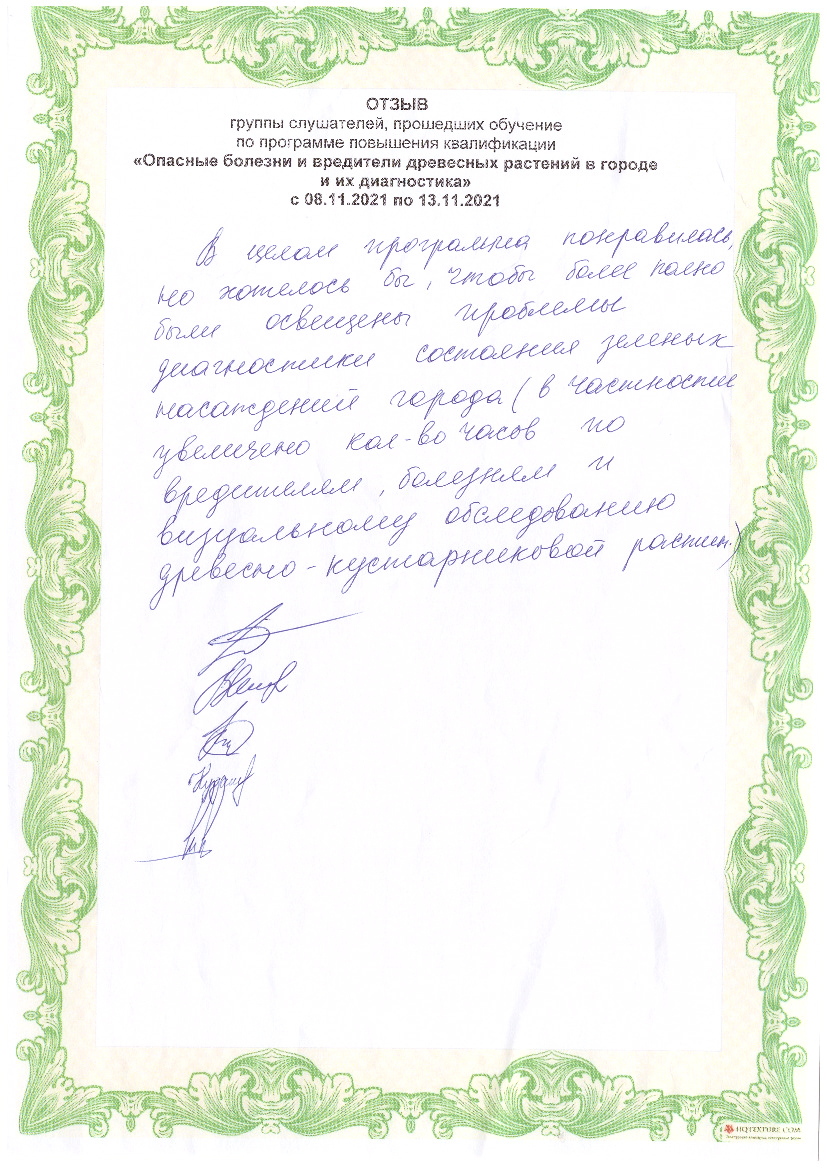 ОТЗЫВ
группы слушателей, прошедших обучение
по программе повышения квалификации
«Опасные болезни и вредители древесных растений в городе
и их диагностика»
с 08.11.2021 по 13.11.2021
В целом программа понравилась,
но хотелось бы, чтобы более полно
были освещены проблемы
диагностики состояния зеленых
насаждений города (в частности
увеличено кол-во часов по
вредителям, болезням и
визуальному обследованию
древесно-кустарниковой растит.)
HQTEXTURE.COM